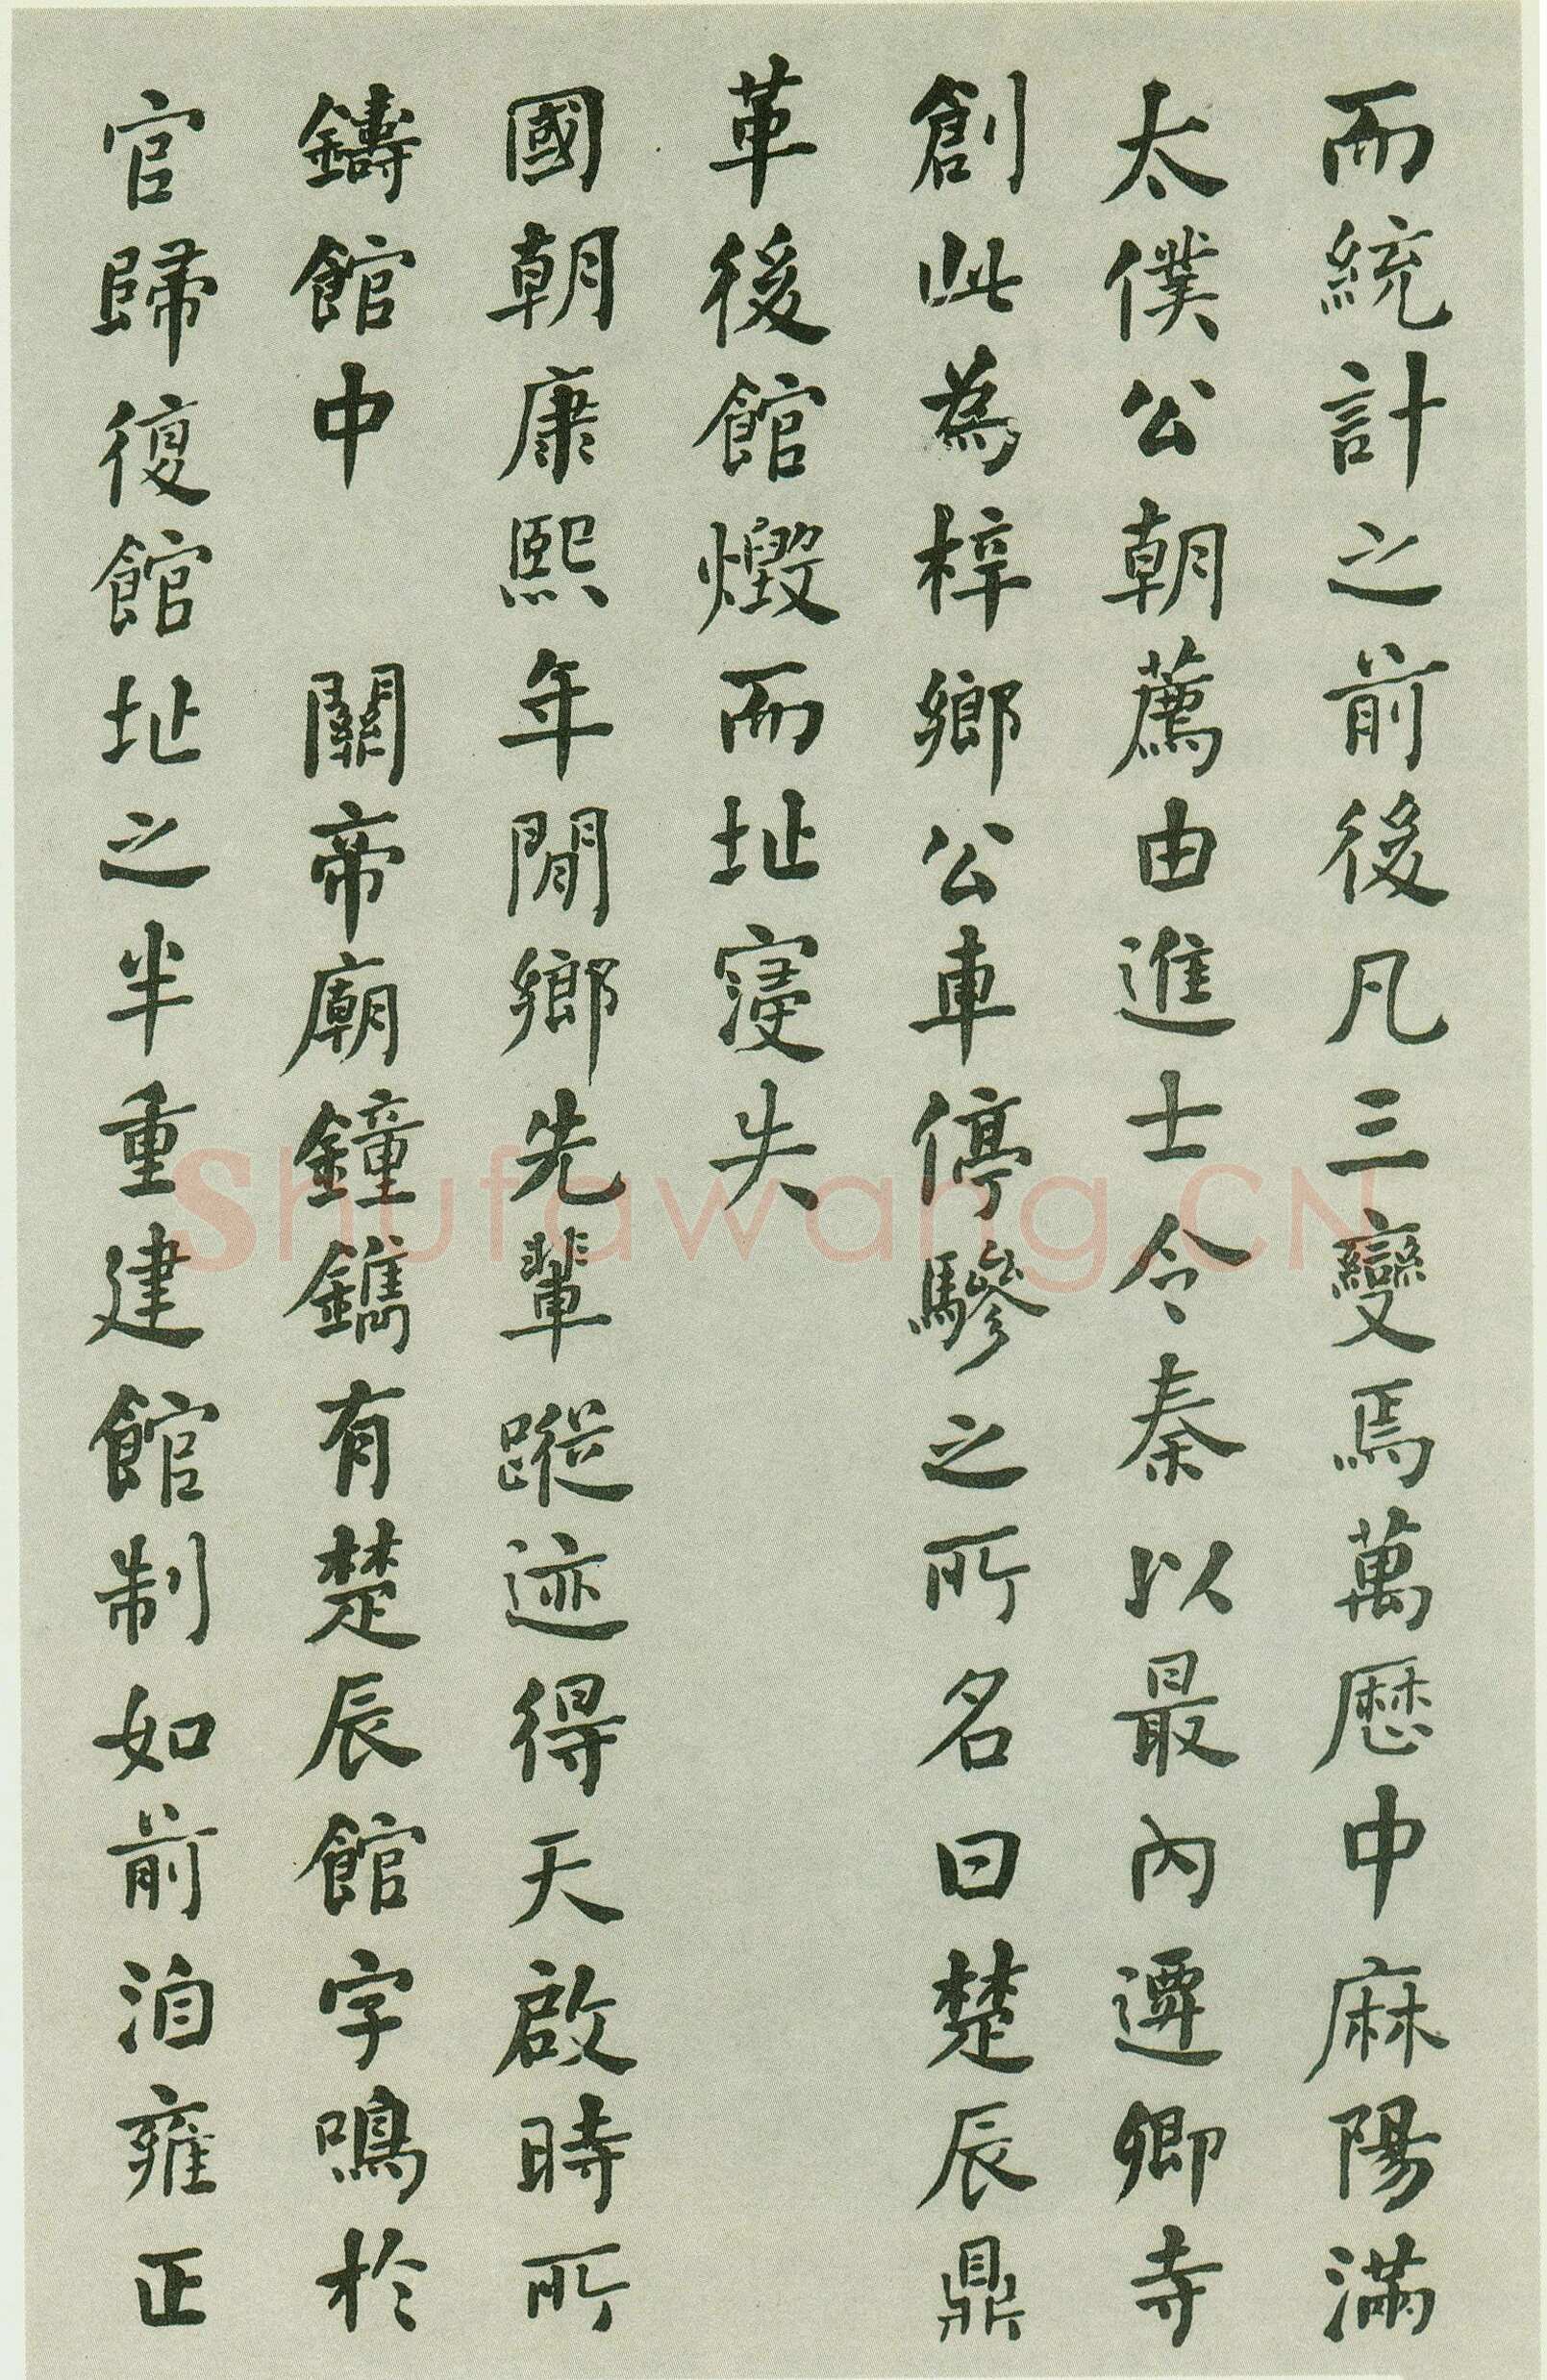 而統計之前後凡三變焉萬厯中麻陽滿
太僕公朝薦由進士令秦以最內遷卿寺
創此為梓鄉公車停驂之所名曰楚辰鼎
革後館燬而址寖失
國朝康熙年閒鄉先輩蹤迹得天啟時所
鑄館中 關帝廟鐘鐫有楚辰館字鳴於
官歸復館址之半重建館制如前洎雍正
Shufawang.CN